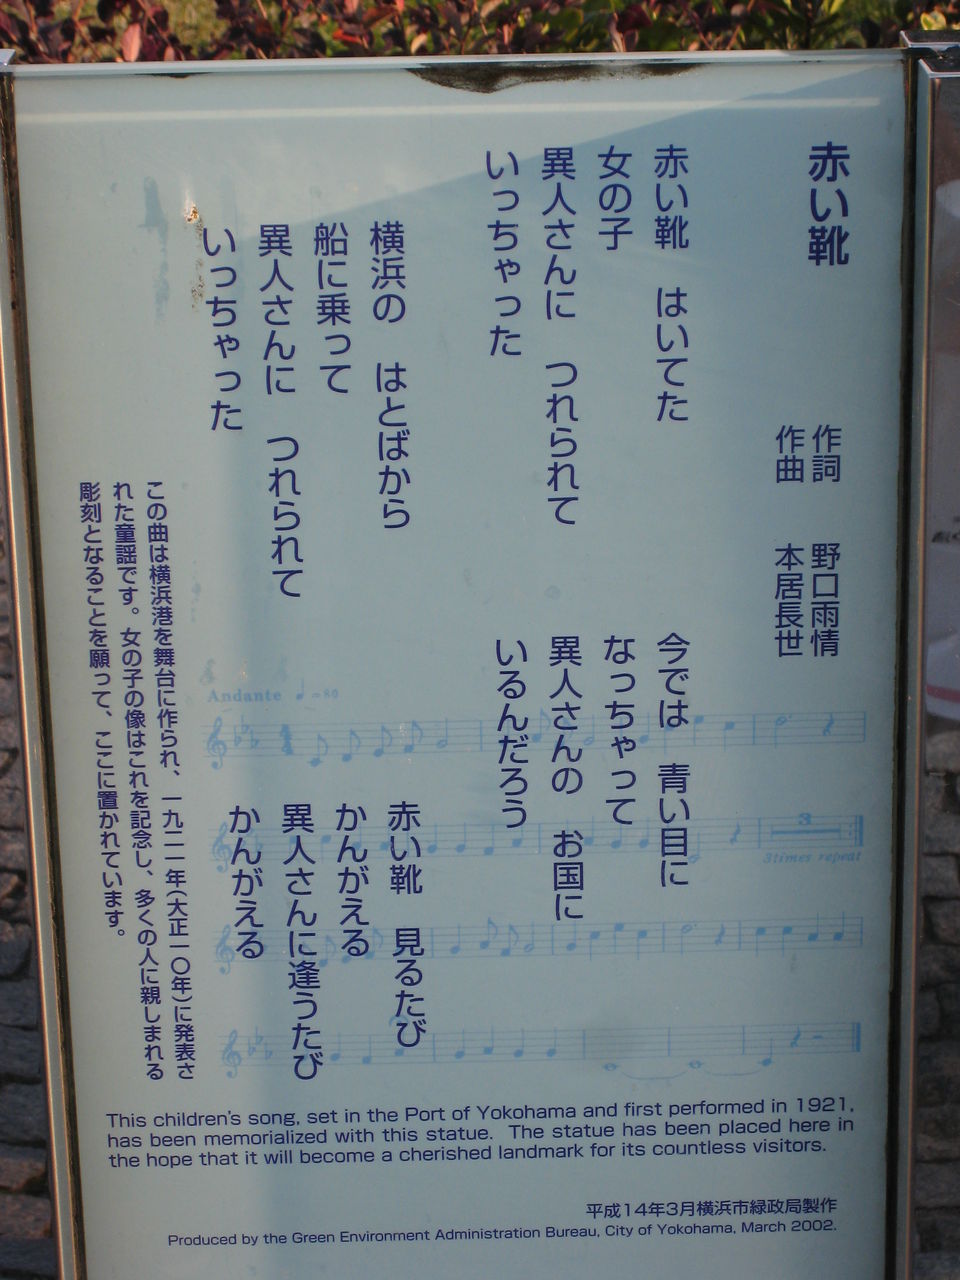 赤い靴
作詞　野口雨情
作曲　本居長世
赤い靴　はいてた
女の子
異人さんに　つれられて
いっちゃった
横浜の　はとばから
船に乗って
異人さんに　つれられて
いっちゃった
今では　青い目に
なっちゃって
異人さんの　お国に
いるんだろう
赤い靴　見るたび
かんがえる
異人さんに逢うたび
かんがえる
この曲は横浜港を舞台に作られ、一九二一年(大正一〇年)に発表さ
れた童謡です。女の子の像はこれを記念し、多くの人に親しまれる
彫刻となることを願って、ここに置かれています。
Andante ♩=80
3
3times repeat
This children's song, set in the Port of Yokohama and first performed in 1921,
has been memorialized with this statue. The statue has been placed here in
the hope that it will become a cherished landmark for its countless visitors.
平成14年3月横浜市緑政局製作
Produced by the Green Environment Administration Bureau, City of Yokohama, March 2002.